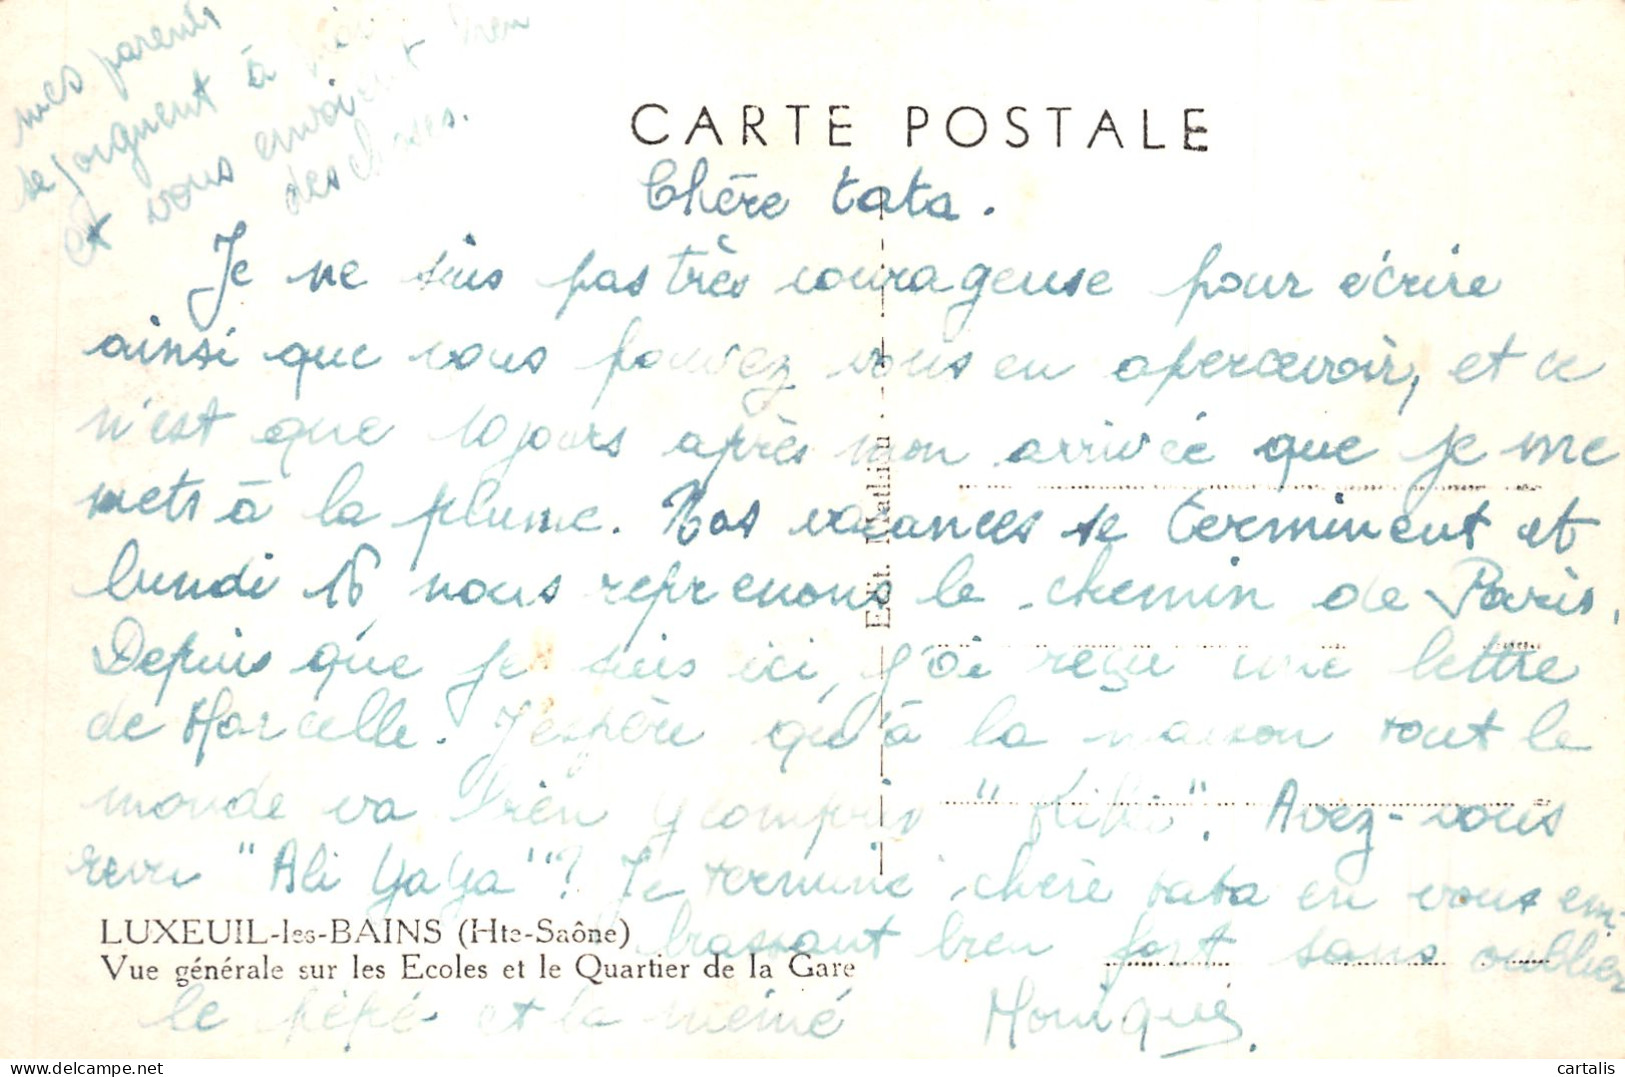 mes parents
se joignent à moi
et vous envoient bien
des choses.
CARTE POSTALE
Chère tata.
Je ne suis pas très courageuse pour écrire
ainsi que vous pouvez vous en apercevoir, et ce
n'est que 10 jours après mon arrivée que je me
mets à la plume. Nos vacances se terminent et
lundi 16 nous reprenons le chemin de Paris.
Depuis que je suis ici, j'ai reçu une lettre
de Marcelle. J'espère qu'à la maison tout le
monde va bien y compris "Kiki". Avez-vous
revu "Ali YaYa"? Je termine chère tata en vous em-
brassant bien fort sans oublier
le pépé et la mémé Monique.
Edit. Mathieu
LUXEUIL-les-BAINS (Hte-Saône)
Vue générale sur les Ecoles et le Quartier de la Gare
https://www.cartalis.com
cartalis